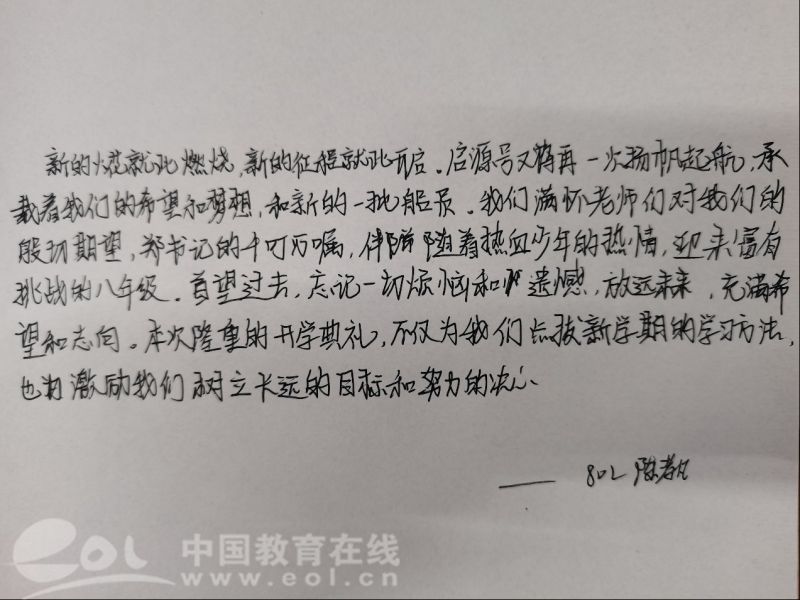 新的火花就此燃烧，新的征程就此开启。启源号又将再一次扬帆起航，承
载着我们的希望和梦想，和新的一批船员。我们满怀老师们对我们的
殷切期望，郑书记的千叮万嘱，伴随随着热血少年的热情，迎来富有
挑战的八年级。首望过去，忘记一切烦恼和遗憾，放远未来，充满希
望和志向。本次隆重的开学典礼，不仅为我们点拨新学期的学习方法，
也激励我们树立长远的目标和努力的决心、
—— 802 陈
eol 中国教育在线
www.eol.cn